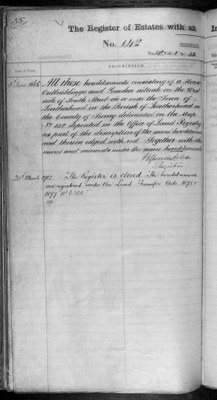 The Register of Estates with an
No. 142
DESCRIPTION.
All those hereditaments consisting of a House
Outbuildings and Garden situate on the West
side of South Street in or near the Town of
Leatherhead in the Parish of Leatherhead in
the County of Surrey delineated on the Map
No 142 deposited in the Office of Land Registry
as part of the description of the same hereditaments
and therein edged with red. Together with the
mines and minerals under the same hereditaments
Registrar
March The Register is closed. The hereditaments
are registered under the Land Transfer Acts 1875